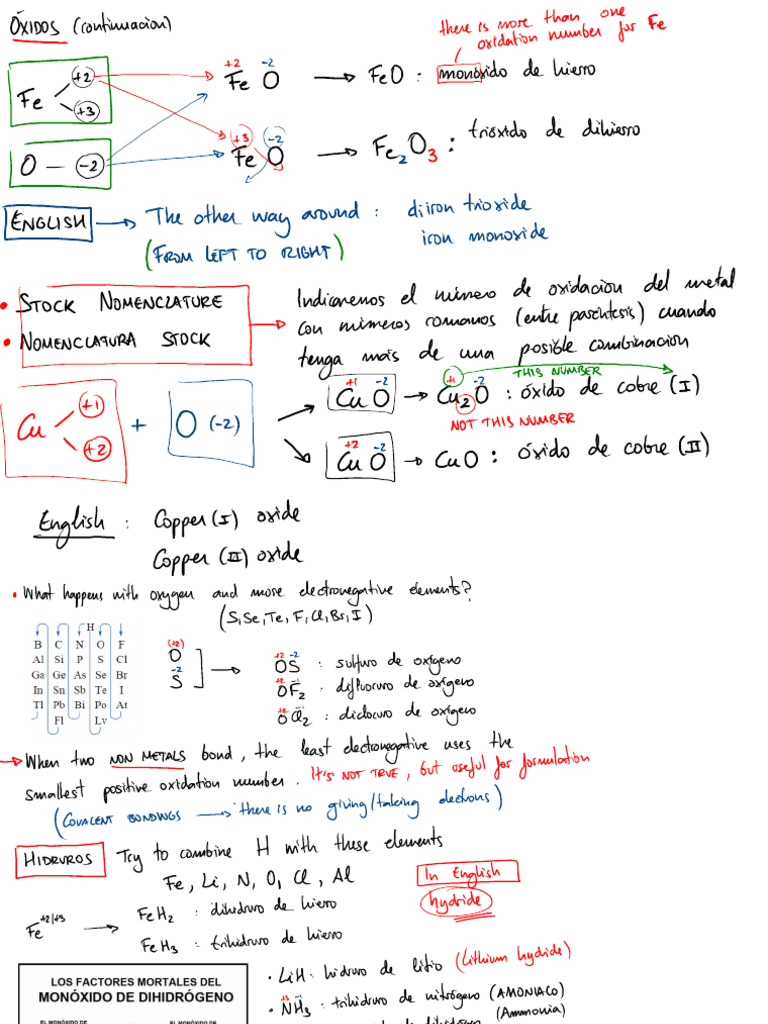 ÓXIDOS (continuación)
there is more than one
oxidation number for Fe
Fe +2 +3
O — -2
+2 -2
Fe O → FeO : monóxido de hierro
+3 -2
Fe O → Fe2O3 : trióxido de dihierro
ENGLISH → The other way around : diiron trioxide
(FROM LEFT TO RIGHT) iron monoxide
• STOCK NOMENCLATURE
• NOMENCLATURA STOCK
Indicaremos el número de oxidación del metal
con números romanos (entre paréntesis) cuando
tenga más de una posible combinación
THIS NUMBER
Cu +1 +2 + O (-2)
+1 -2 +1 -2
Cu O → Cu2O : óxido de cobre (I)
NOT THIS NUMBER
+2 -2
Cu O → CuO : óxido de cobre (II)
English : Copper (I) oxide
Copper (II) oxide
• What happens with oxygen and more electronegative elements?
(S, Se, Te, F, Cl, Br, I)
H
B C N O F
Al Si P S Cl
Ga Ge As Se Br
In Sn Sb Te I
Tl Pb Bi Po At
Fl Lv
(+2)
O
-2
S
+2 -2
OS : sulfuro de oxígeno
+2 -1
OF2 : difluoruro de oxígeno
+2 -1
OCl2 : dicloruro de oxígeno
→ When two NON METALS bond, the least electronegative uses the
smallest positive oxidation number. IT'S NOT TRUE, but useful for formulation
(COVALENT BONDINGS → there is no giving/taking electrons)
HIDRUROS Try to combine H with these elements
Fe, Li, N, O, Cl, Al
In English
hydride
+2/+3
Fe → FeH2 : dihidruro de hierro
FeH3 : trihidruro de hierro
• LiH : hidruro de litio (Lithium hydride)
+3 -1
• NH3 : trihidruro de nitrógeno (AMONIACO)
(Ammonia)
LOS FACTORES MORTALES DEL
MONÓXIDO DE DIHIDRÓGENO
EL MONÓXIDO DE EL MONÓXIDO DE